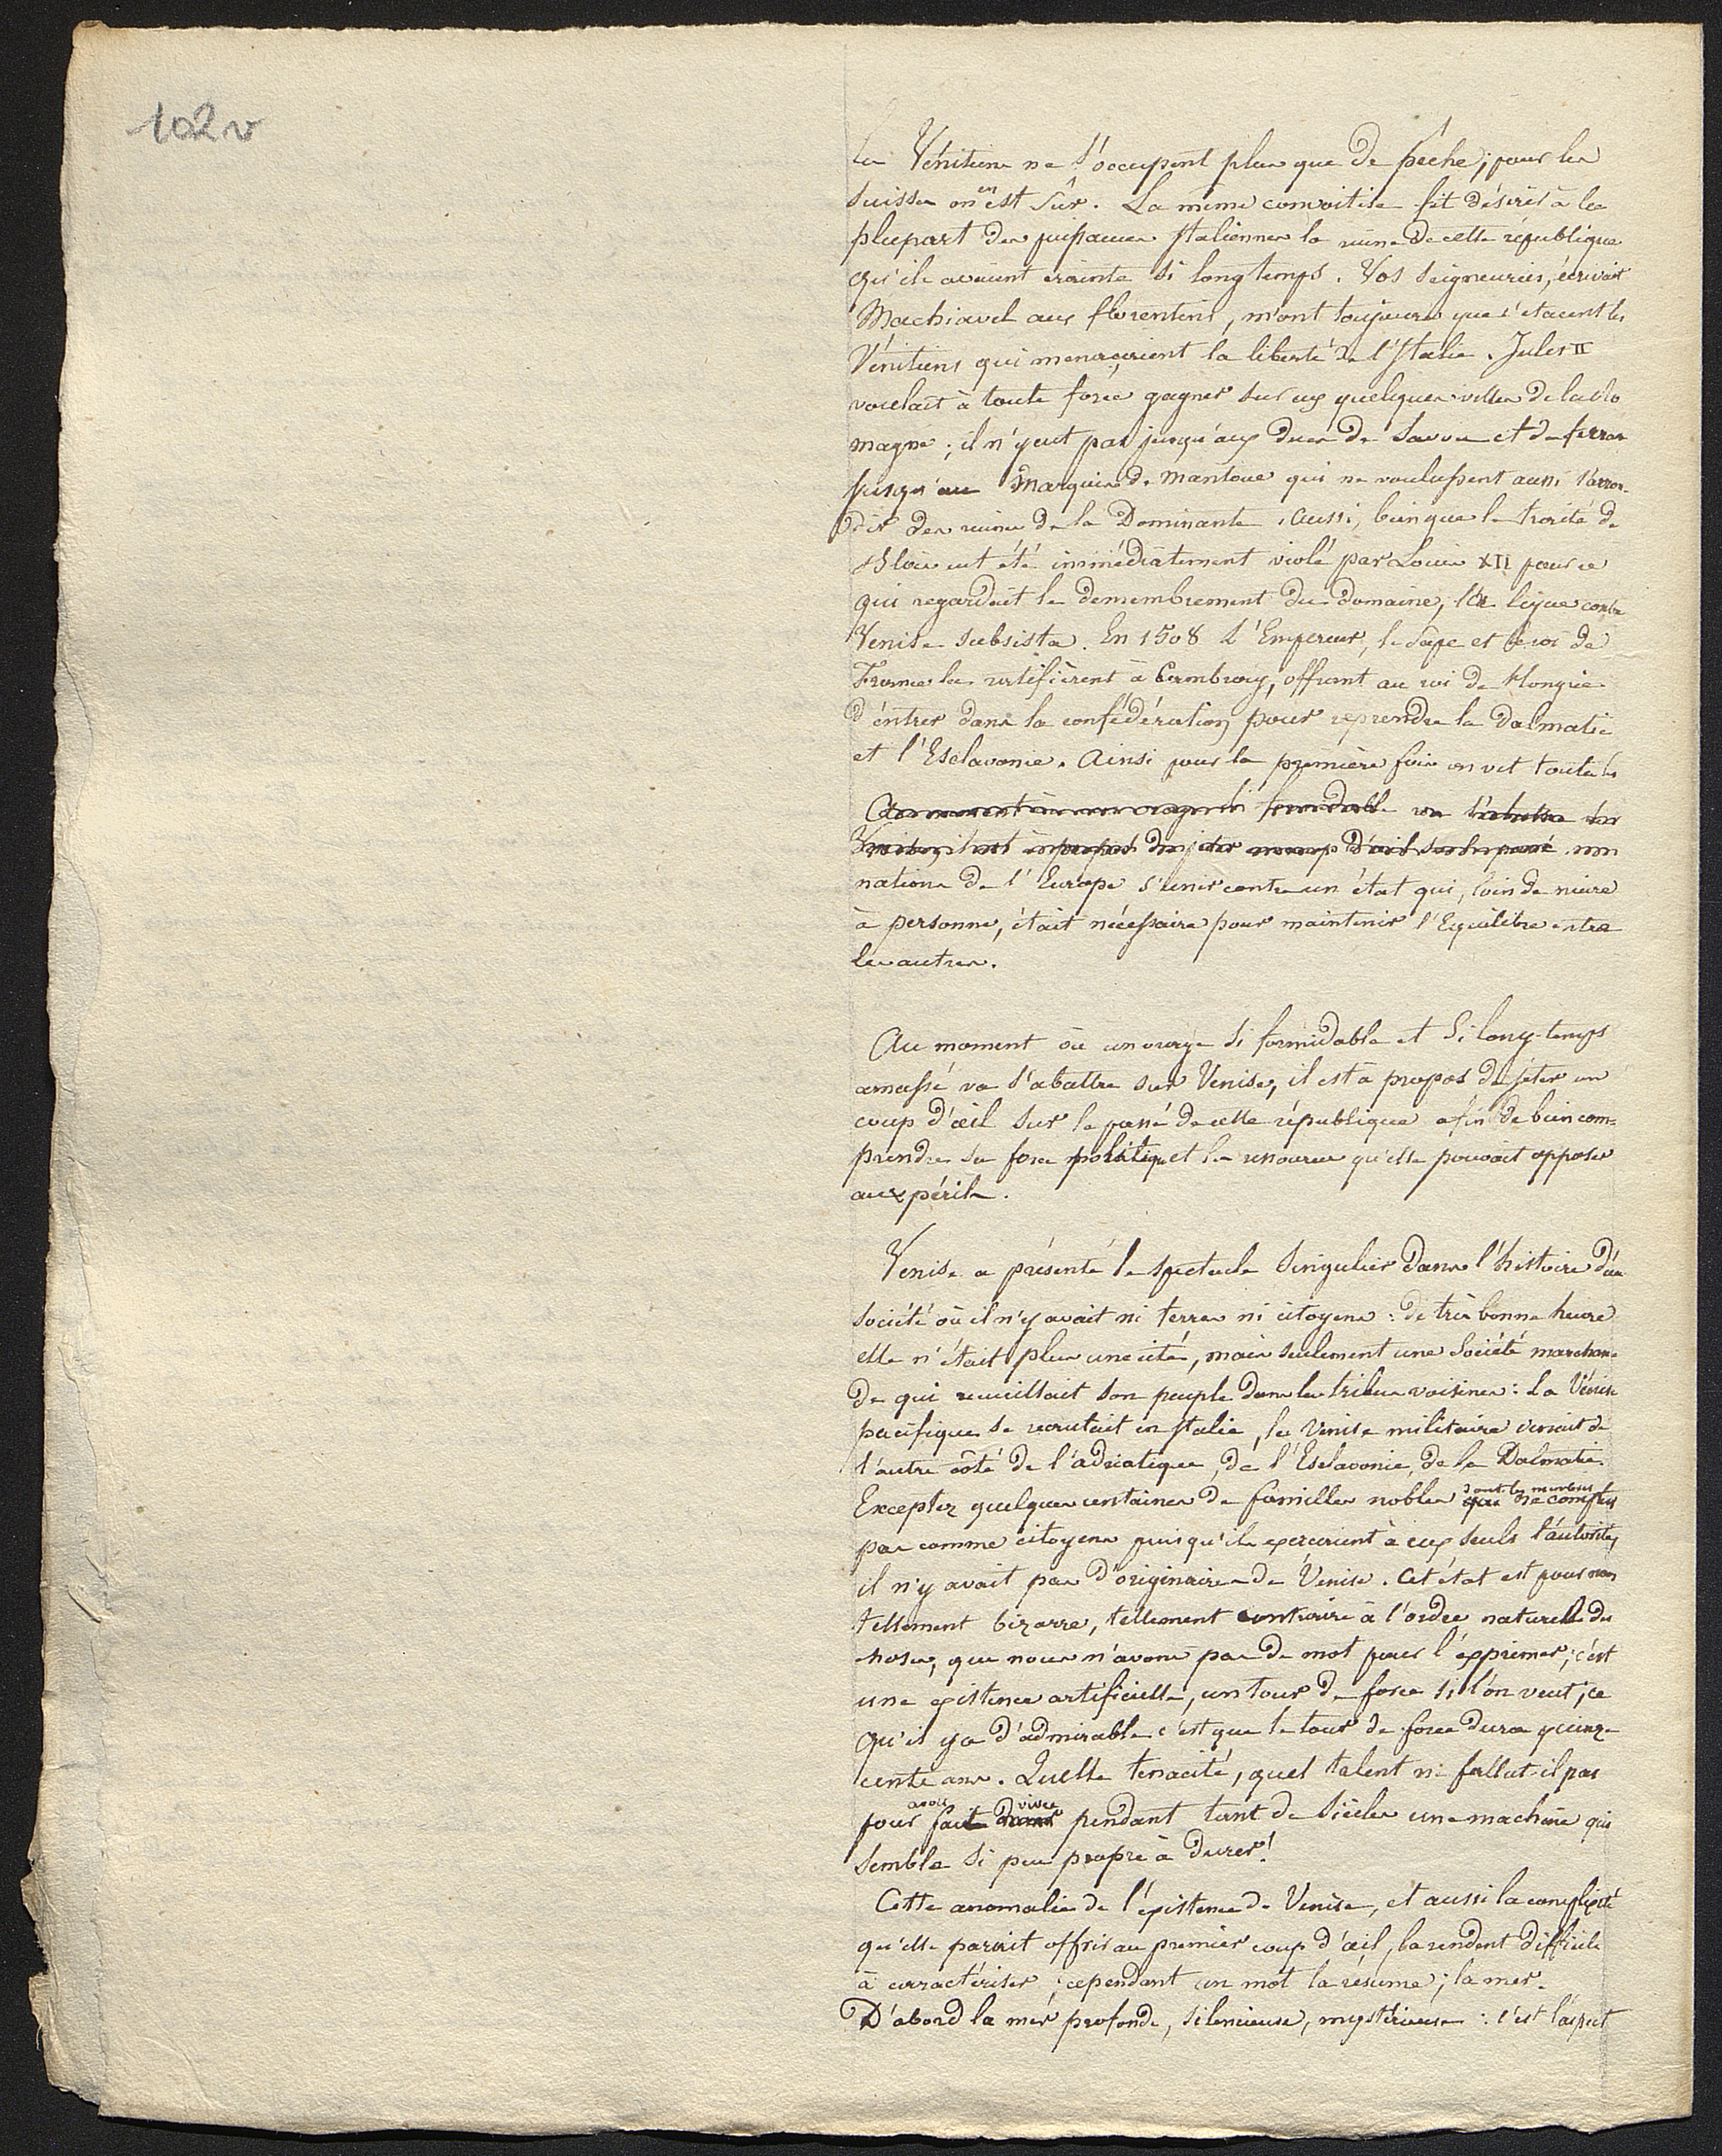 102v
les Vénitiens ne s'occupent plus que de pêche; pour les
suisses on en est sûr. La même convoitise fit désirer à la
plupart des puissances Italiennes la ruine de cette république
qu'ils avaient crainte si longtemps. Vos seigneuries, écrivait
Machiavel aux florentins, m'ont toujours que c'etaient les
Vénitiens qui menaçaient la liberté de l'Italie. Jules II
voulait à toute force gagner sur eux quelques villes de la Ro
magne; il n'y eut pas jusqu'aux ducs de Savoie et de ferrare
jusqu'au Marquis de Mantoue qui ne voulussent aussi s'arron-
dir des ruines de la Dominante. Aussi, bien que le traité de
Blois eut été immédiatement violé par Louis XII pour ce
qui regardait le demembrement du domaine, la ligue contre
Venise subsista. En 1508 L'Empereur, le Pape et le roi de
France la ratifièrent à Cambray, offrant au roi de Hongrie
d'entrer dans la confédération pour reprendre la Dalmatie
et l'Esclavonie. Ainsi pour la première fois on vit toutes les
Au moment où un orage si formidable va s'abattre sur
Venise, il est à propos de jeter un coup d'œil sur le passé
nations de l'Europe s'unir contre un état qui, loin de nuire
à personne, était nécessaire pour maintenir l'Equilibre entre
les autres.
Au moment où un orage si formidable et si long-temps
amassé va s'abattre sur Venise, il est à propos de jeter un
coup d'œil sur le passé de cette république afin de bien com-
prendre sa force politique et les ressources qu'elle pouvait opposer
aux périls.
Venise a présenté le spectacle singulier dans l'histoire d'une
société où il n'y avait ni terres ni citoyens: de très bonne heure
elle n'était plus une cité, mais seulement une Société marchan-
de qui recueillait son peuple dans les tribus voisines: La Venise
pacifique se recrutait en Italie, la Venise militaire venait de
l'autre côté de l'adriatique, de l'Esclavonie, de la Dalmatie.
Exceptez quelques centaines de familles nobles dont les membres que ne comptez
pas comme citoyens puisqu'ils exerçaient à eux seuls l'autorité,
il n'y avait pas d'originaires de Venise. Cet état est pour nous
tellement bizarre, tellement contraire à l'ordre naturel des
choses, que nous n'avons pas de mot pour l'exprimer; c'est
une existence artificielle, un tour de force si l'on veut; ce
qu'il y a d'admirable c'est que le tour de force dura quinze
cents ans. Quelle tenacité, quel talent ne fallut-il pas
pour avoir fait vivre pendant tant de siècles une machine qui
semble si peu propre à durer!
Cette anomalie de l'existence de Venise, et aussi la complexité
qu'elle parait offrir au premier coup d'œil, la rendent difficile
à caractériser; cependant un mot la résume; la mer.
D'abord la mer profonde, silencieuse, mystérieuse: c'est l'aspect